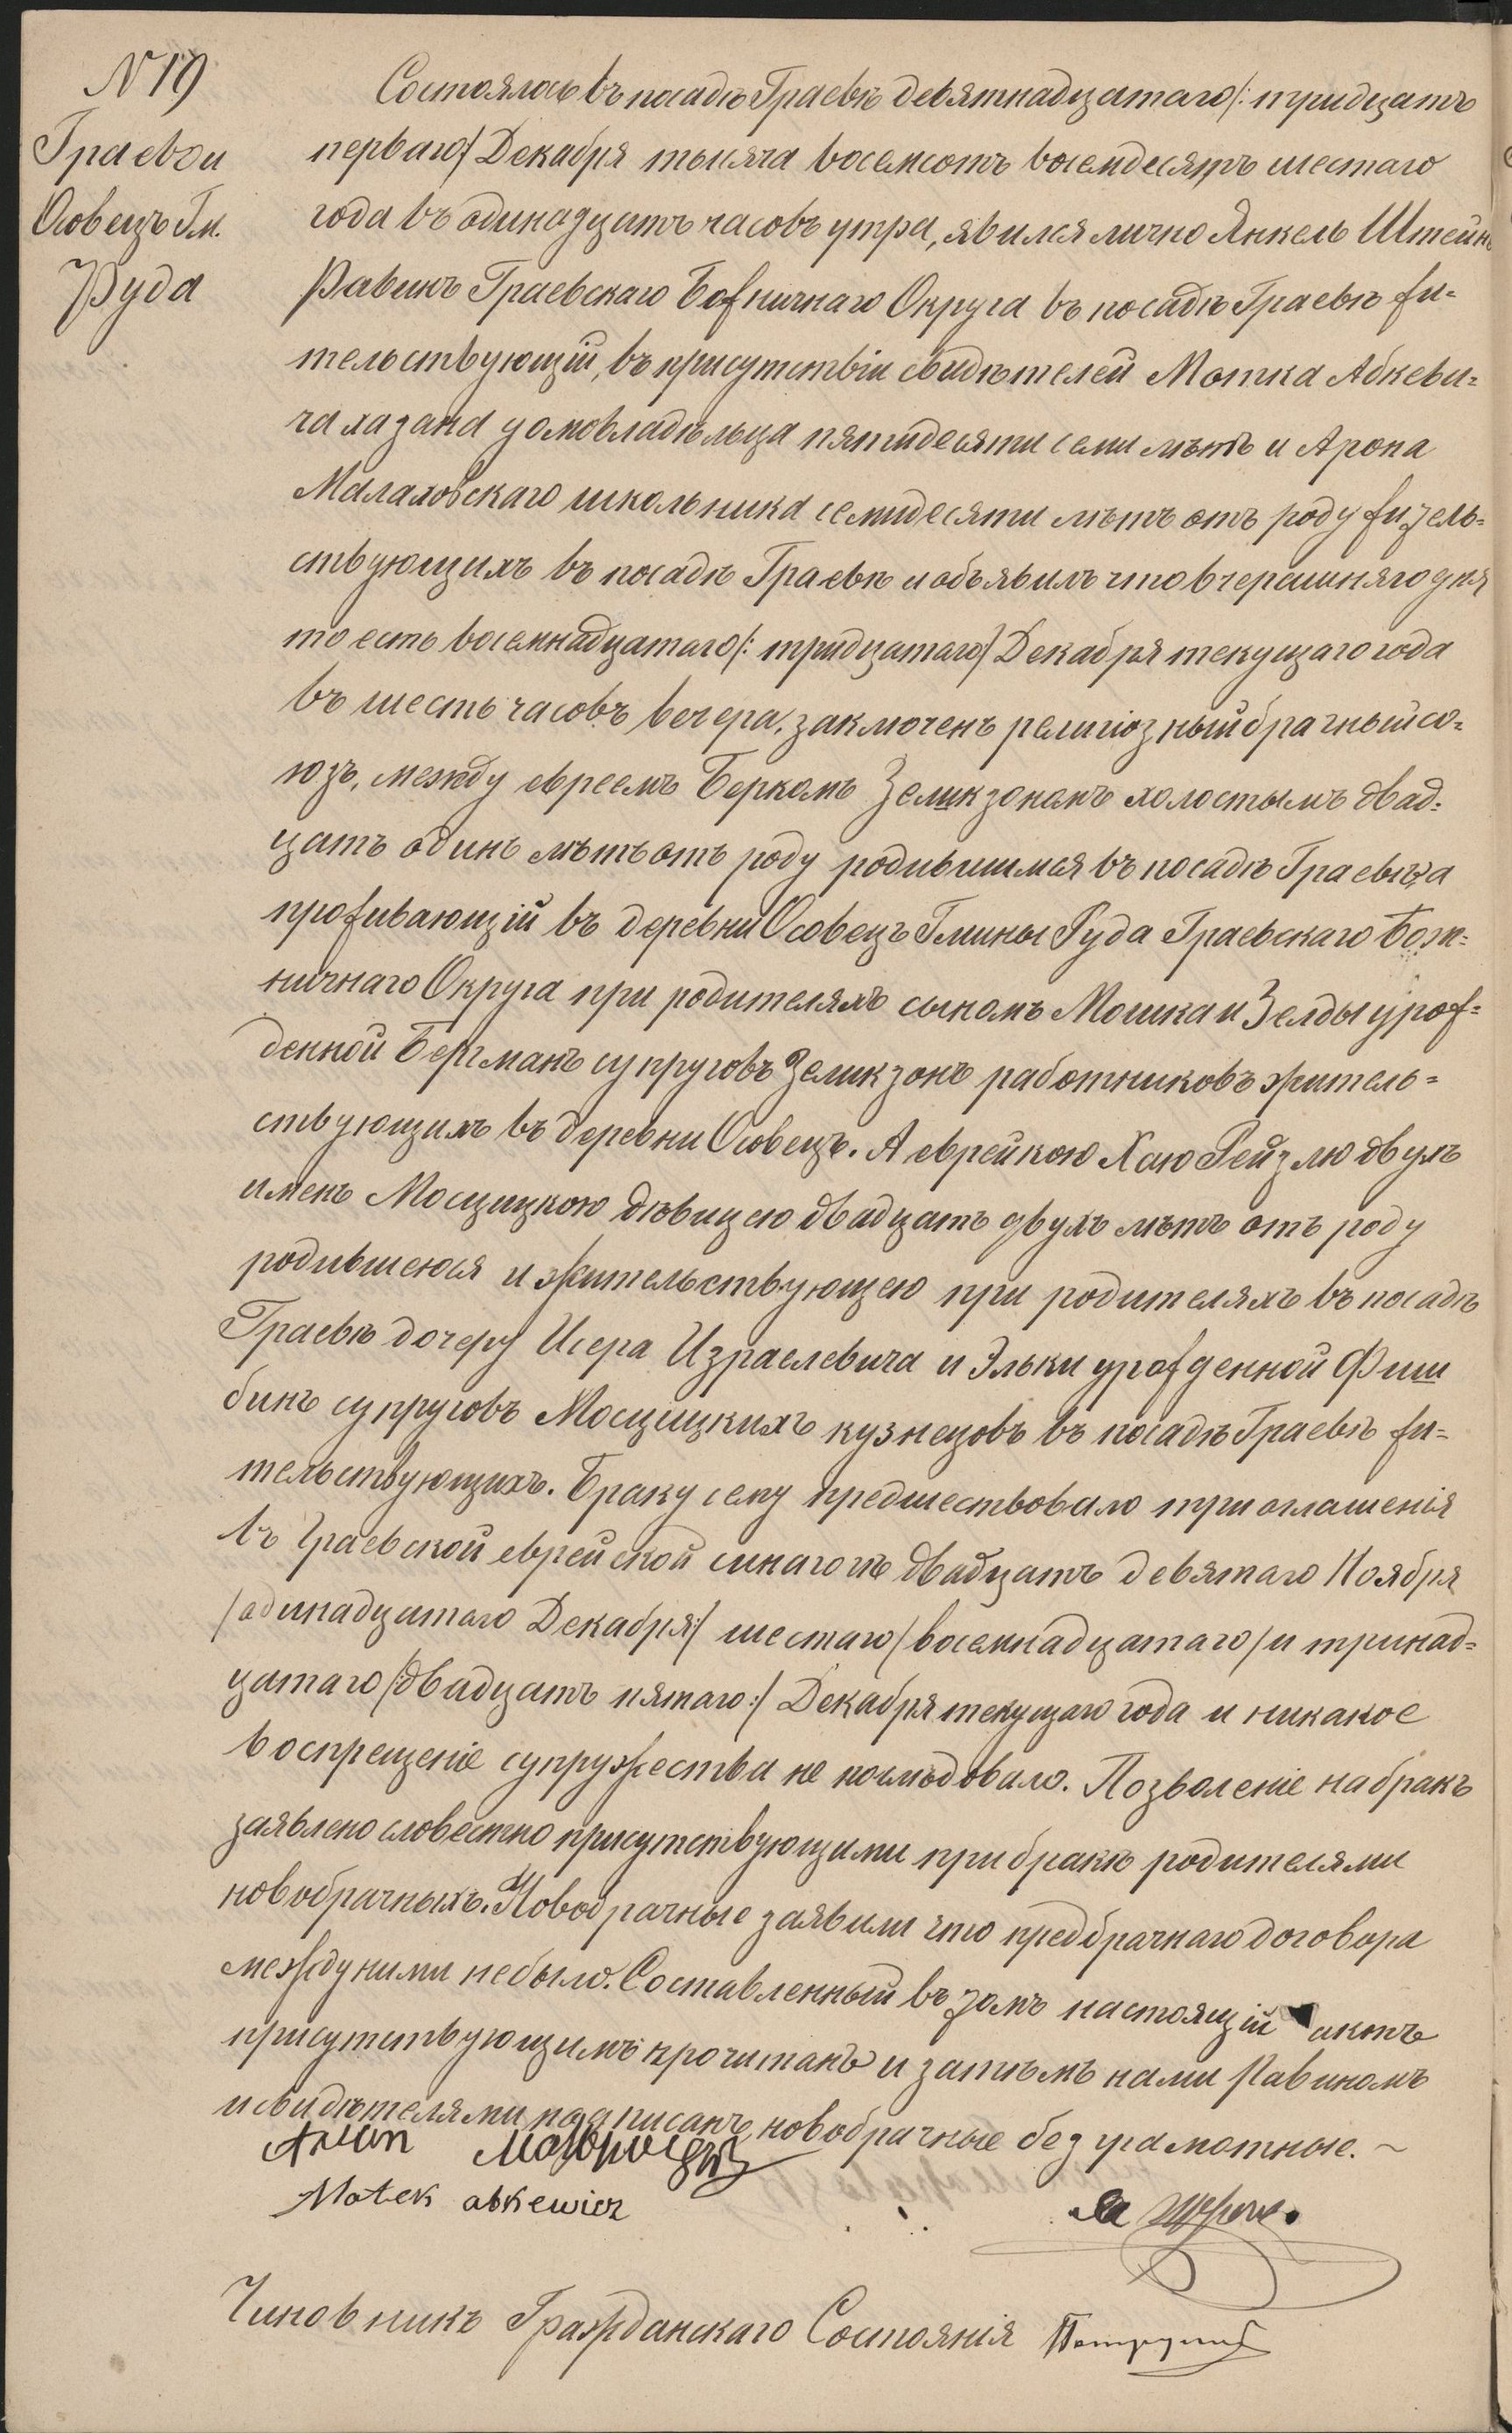 N 19
Граево и
Осовецъ Гм.
Руда
Состоялось въ посадѣ Граевѣ девятнадцатаго /: тридцать
перваго / Декабря тысяча восемсотъ восемдесятъ шестаго
года въ одинадцать часовъ утра, явился лично Янкель Штейнъ
Равинъ Граевскаго Божничнаго Округа въ посадѣ Граевѣ жи=
тельствующій, въ присутствіи свидѣтелей Мотка Абкеви=
ча хазана домовладѣльца пятидесяти семи лѣтъ и Арона
Малаховскаго школьника семидесяти лѣтъ отъ роду житель=
ствующихъ въ посадѣ Граевѣ и объявилъ что вчерашняго дня
то есть восемнадцатаго /: тридцатаго / Декабря текущаго года
въ шесть часовъ вечера, заключенъ религіозный брачный со=
юзъ, между евреемъ Беркомъ Зеликзономъ холостымъ двад=
цать одинъ лѣтъ отъ роду родившимся въ посадѣ Граевѣ, а
проживающій въ деревни Осовецъ Гмины Руда Граевскаго Бож=
ничнаго Округа при родителяхъ сыномъ Мошка и Зелды урож=
денной Бергманъ супруговъ Зеликзонъ работниковъ житель=
ствующихъ въ деревни Осовецъ. А еврейкою Хаю Рейзлю двухъ
именъ Мосцицкою дѣвицею двадцать двухъ лѣтъ отъ роду
родившеюся и жительствующею при родителяхъ въ посадѣ
Граевѣ дочеру Исера Израелевича и Эльки урожденной Фиш
бинъ супруговъ Мосцицкихъ кузнецовъ въ посадѣ Граевѣ жи=
тельствующихъ. Браку сему предшествовало три оглашенія
въ Граевской еврейской синагогѣ двадцать девятаго Ноября
/ одинадцатаго Декабря :/ шестаго / восемнадцатаго / и тринад=
цатаго /: двадцать пятаго :/ Декабря текущаго года и никакое
воспрещеніе супружества не послѣдовало. Позволеніе на бракъ
заявлено словестно присутствующими при бракѣ родителями
новобрачныхъ. Новобрачные заявили что предбрачнаго договора
между ними не было. Составленный въ томъ настоящій актъ
присутствующимъ прочитанъ и затѣмъ нами Равиномъ
и свидѣтелями подписанъ, новобрачные безграмотные. ~
Motek abkewicz
Чиновникъ Гражданскаго Состоянія